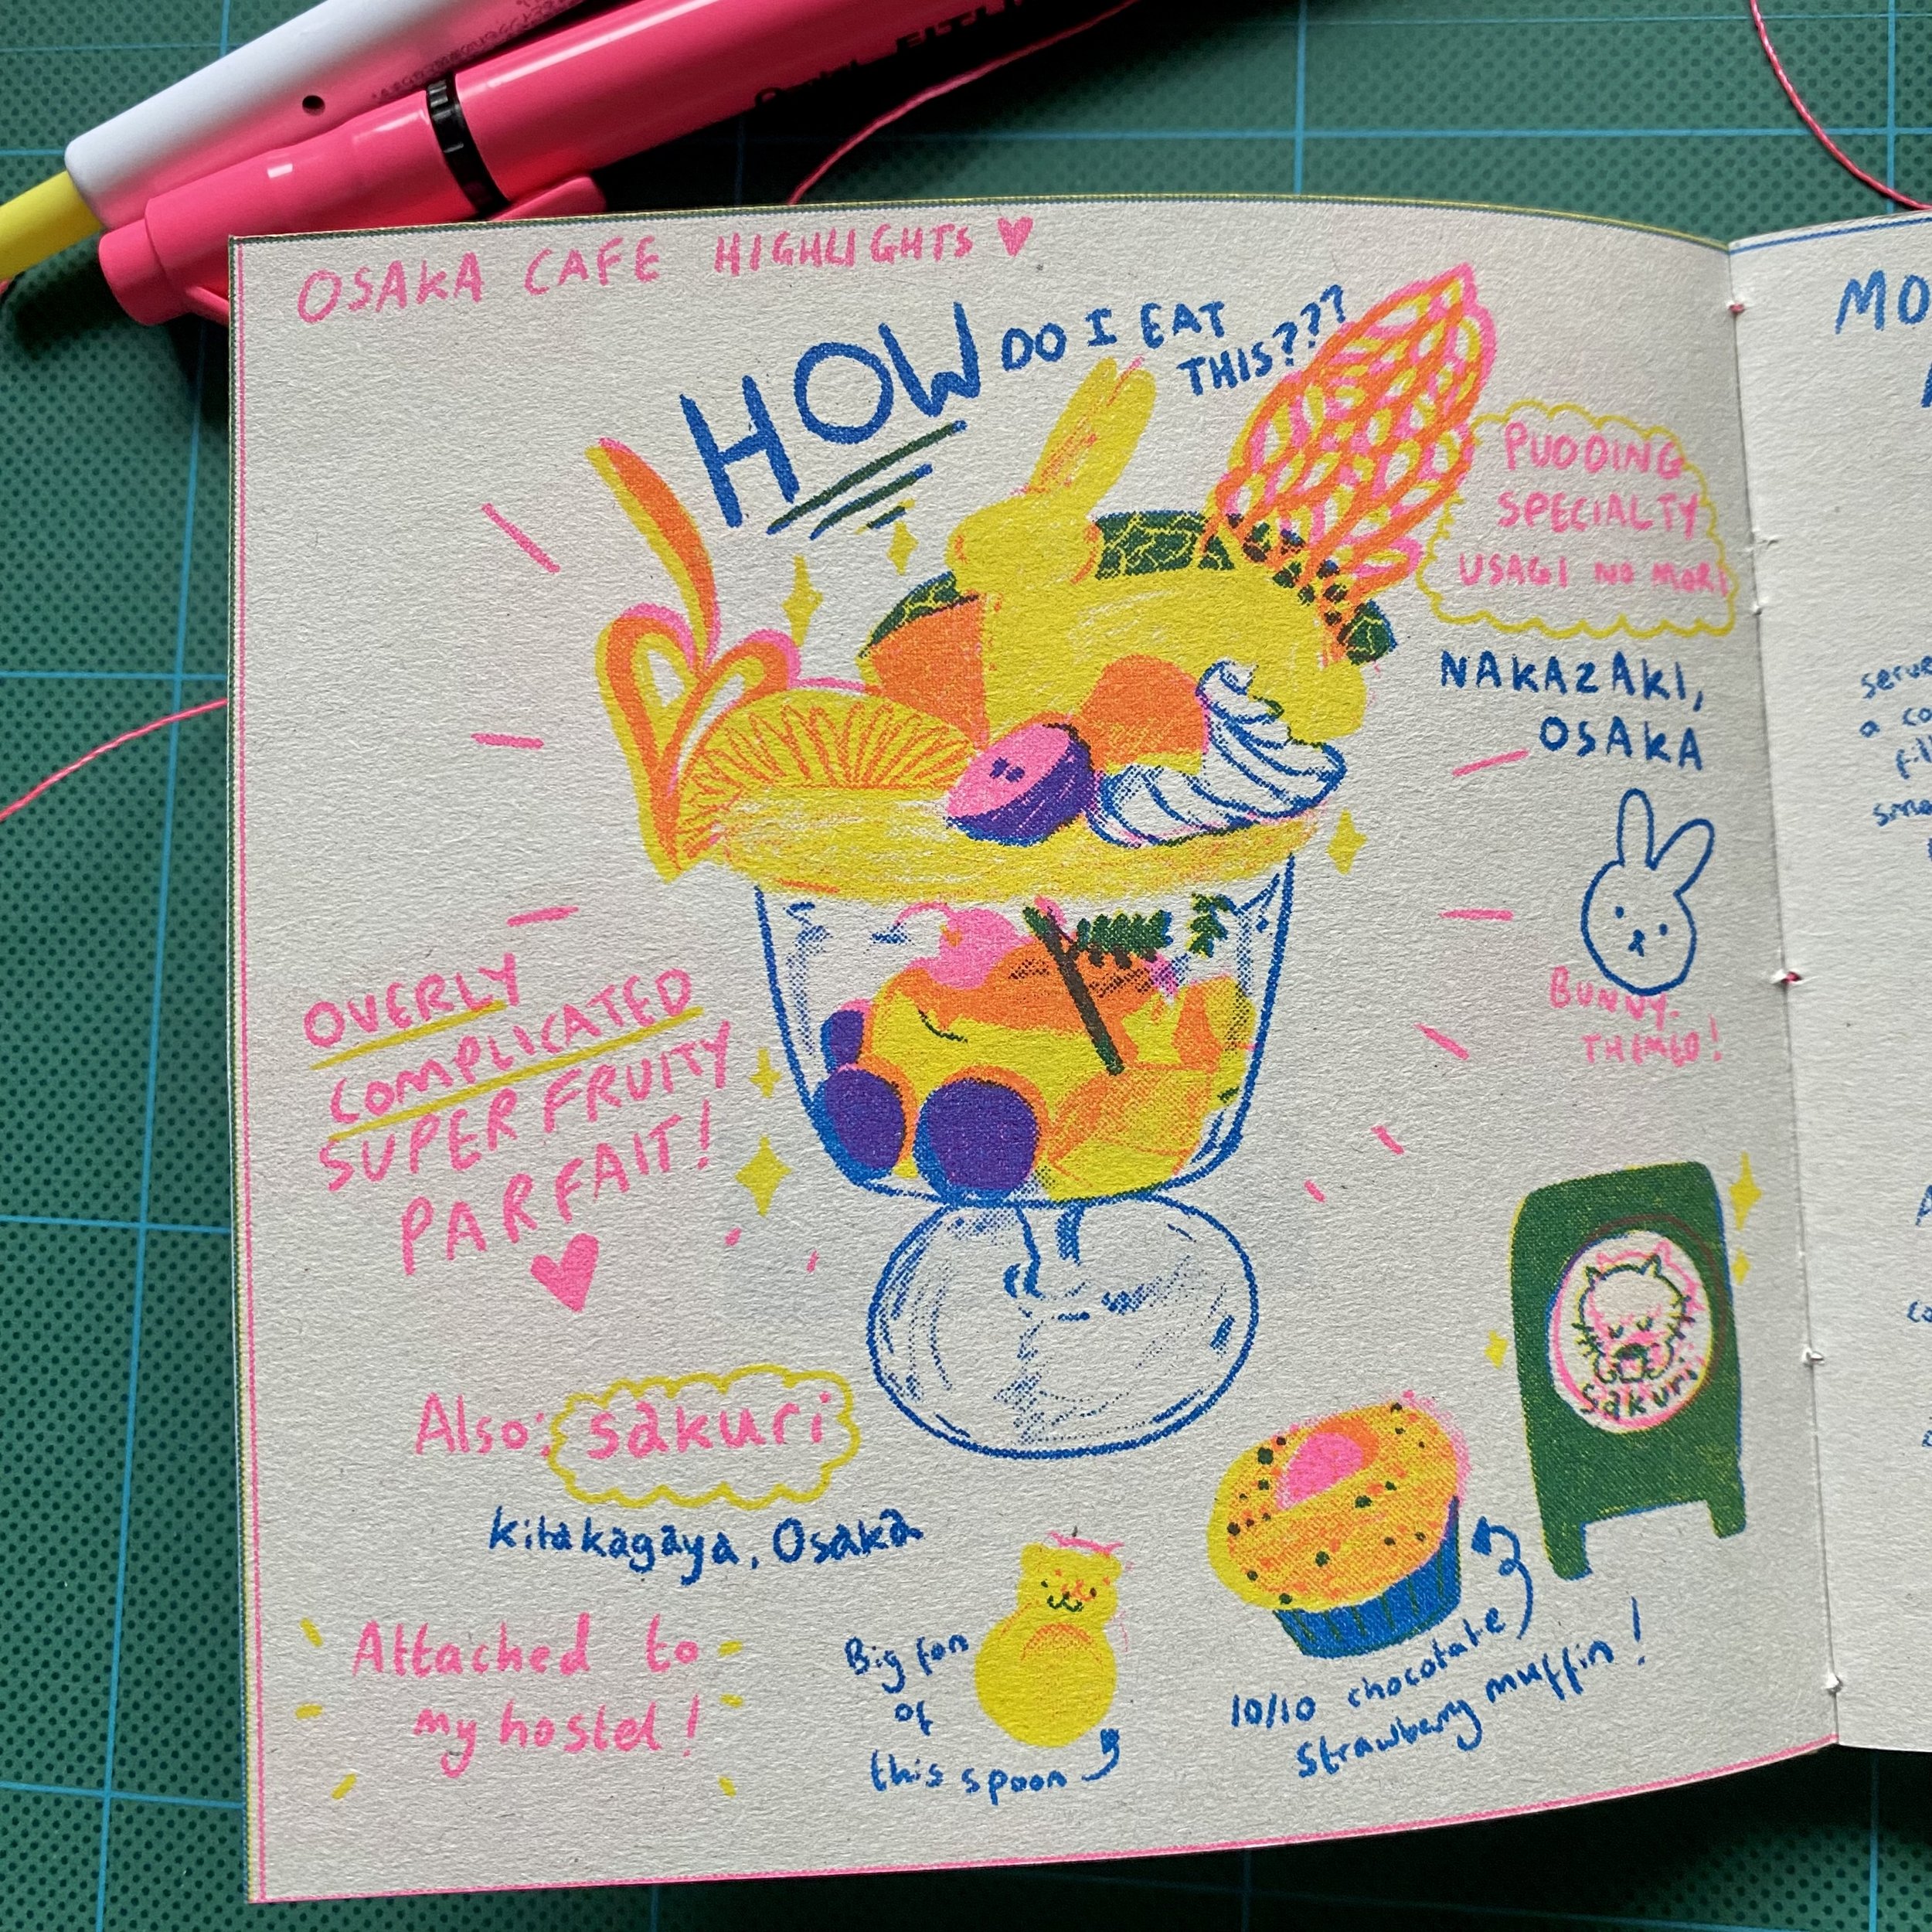 OSAKA CAFE HIGHLIGHTS
HOW DO I EAT
THIS???
PUDDING
SPECIALTY
USAGI NO MORI
NAKAZAKI,
OSAKA
BUNNY-
THEMED!
OVERLY
COMPLICATED
SUPER FRUITY
PARFAIT!
sakuri
Also: sakuri
kitakagaya, Osaka
Attached to
my hostel!
Big fan
of
this spoon
10/10 chocolate
strawberry muffin!
MO
a co